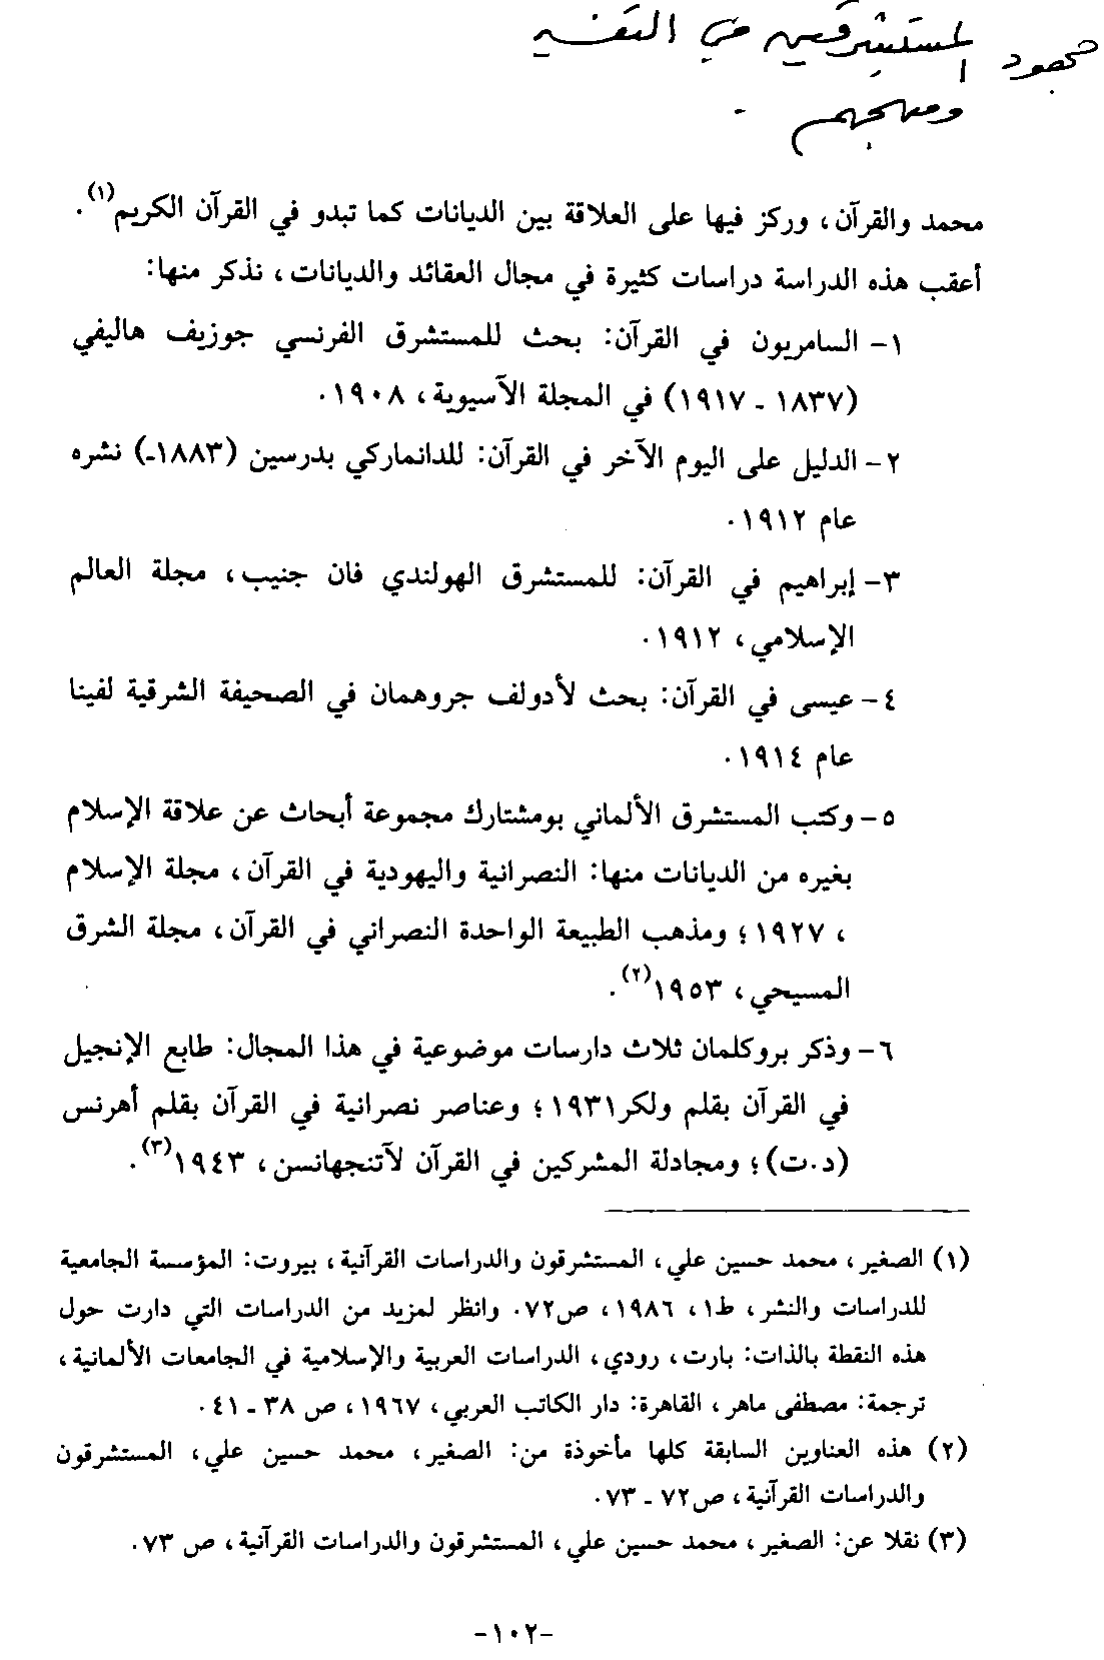 جهود المستشرقين في التفسير
ومنهجهم .
محمد والقرآن، وركز فيها على العلاقة بين الديانات كما تبدو في القرآن الكريم(١).
أعقب هذه الدراسة دراسات كثيرة في مجال العقائد والديانات، نذكر منها:
١- السامريون في القرآن: بحث للمستشرق الفرنسي جوزيف هاليفي
(١٨٣٧ - ١٩١٧) في المجلة الآسيوية، ١٩٠٨.
٢- الدليل على اليوم الآخر في القرآن: للدانماركي بدرسين (١٨٨٣-) نشره
عام ١٩١٢.
٣- إبراهيم في القرآن: للمستشرق الهولندي فان جنيب، مجلة العالم
الإسلامي، ١٩١٢.
٤- عيسى في القرآن: بحث لأدولف جروهمان في الصحيفة الشرقية لفينا
عام ١٩١٤.
٥- وكتب المستشرق الألماني بومشتارك مجموعة أبحاث عن علاقة الإسلام
بغيره من الديانات منها: النصرانية واليهودية في القرآن، مجلة الإسلام
، ١٩٢٧؛ ومذهب الطبيعة الواحدة النصراني في القرآن، مجلة الشرق
المسيحي، ١٩٥٣(٢).
٦- وذكر بروكلمان ثلاث دارسات موضوعية في هذا المجال: طابع الإنجيل
في القرآن بقلم ولكر١٩٣١؛ وعناصر نصرانية في القرآن بقلم أهرنس
(د.ت)؛ ومجادلة المشركين في القرآن لآتنجهانسن، ١٩٤٣(٣).
(١) الصغير، محمد حسين علي، المستشرقون والدراسات القرآنية، بيروت: المؤسسة الجامعية
للدراسات والنشر، ط١، ١٩٨٦، ص٧٢. وانظر لمزيد من الدراسات التي دارت حول
هذه النقطة بالذات: بارت، رودي، الدراسات العربية والإسلامية في الجامعات الألمانية،
ترجمة: مصطفى ماهر، القاهرة: دار الكاتب العربي، ١٩٦٧، ص ٣٨ - ٤١.
(٢) هذه العناوين السابقة كلها مأخوذة من: الصغير، محمد حسين علي، المستشرقون
والدراسات القرآنية، ص٧٢ - ٧٣.
(٣) نقلا عن: الصغير، محمد حسين علي، المستشرقون والدراسات القرآنية، ص ٧٣.
-١٠٢-